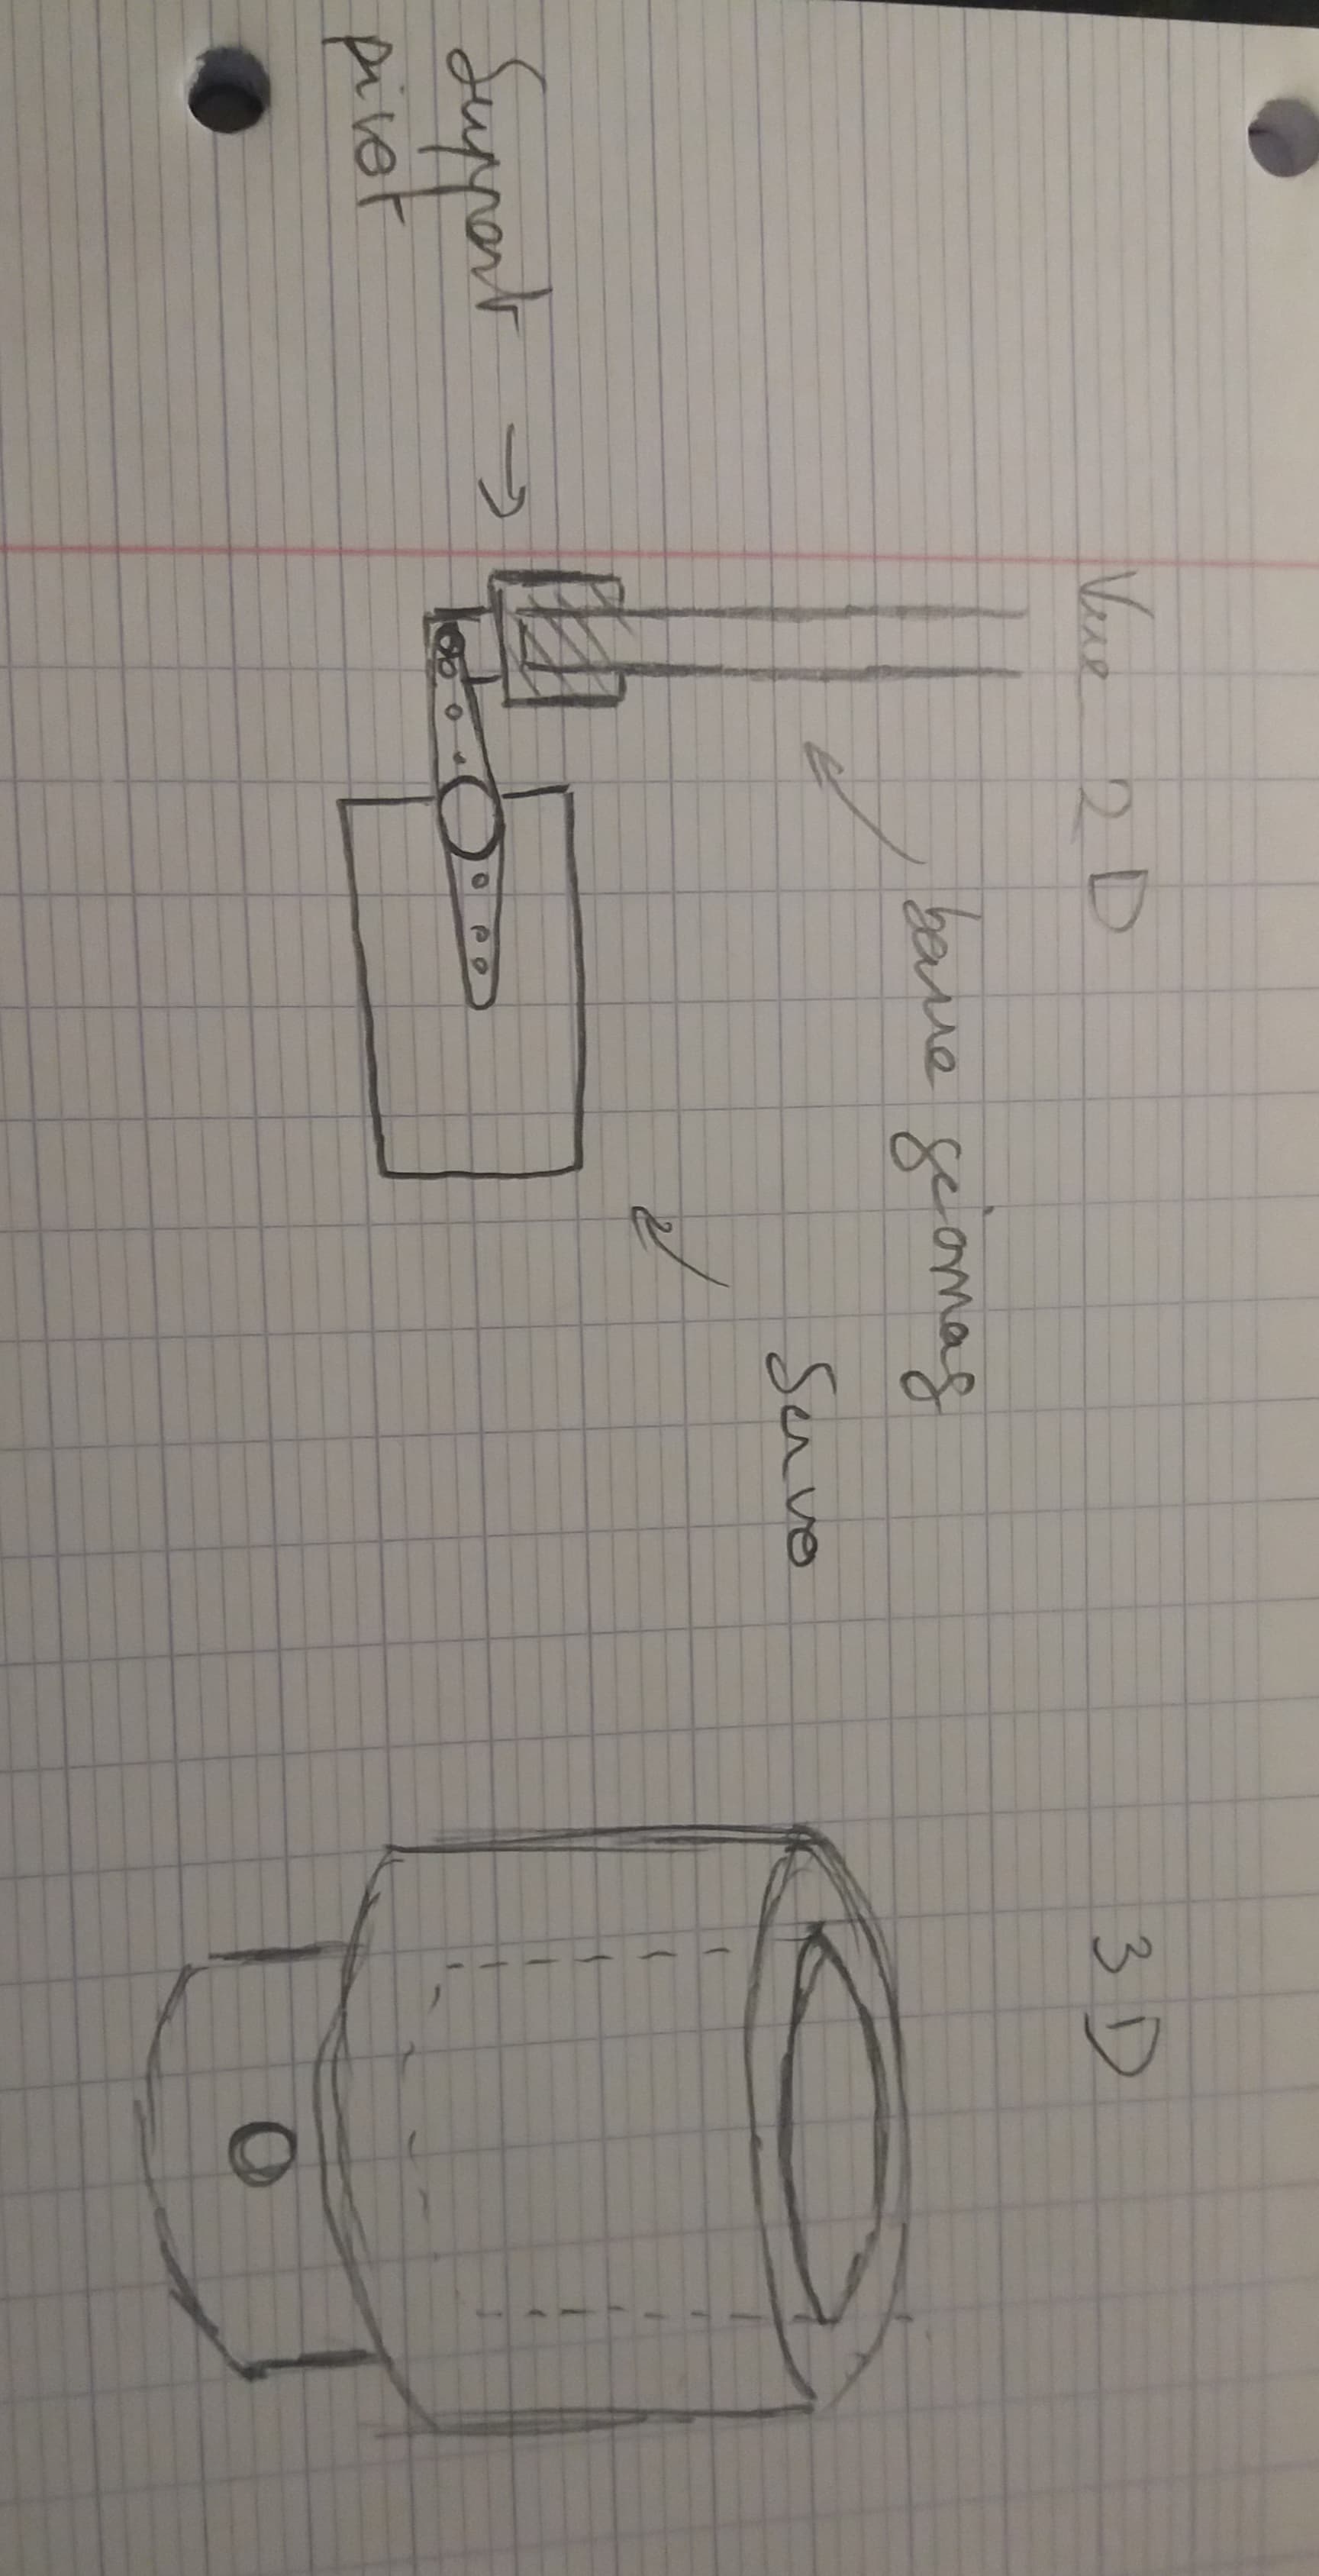 Vue 2D
3D
barre géomag
Servo
Support
pivot